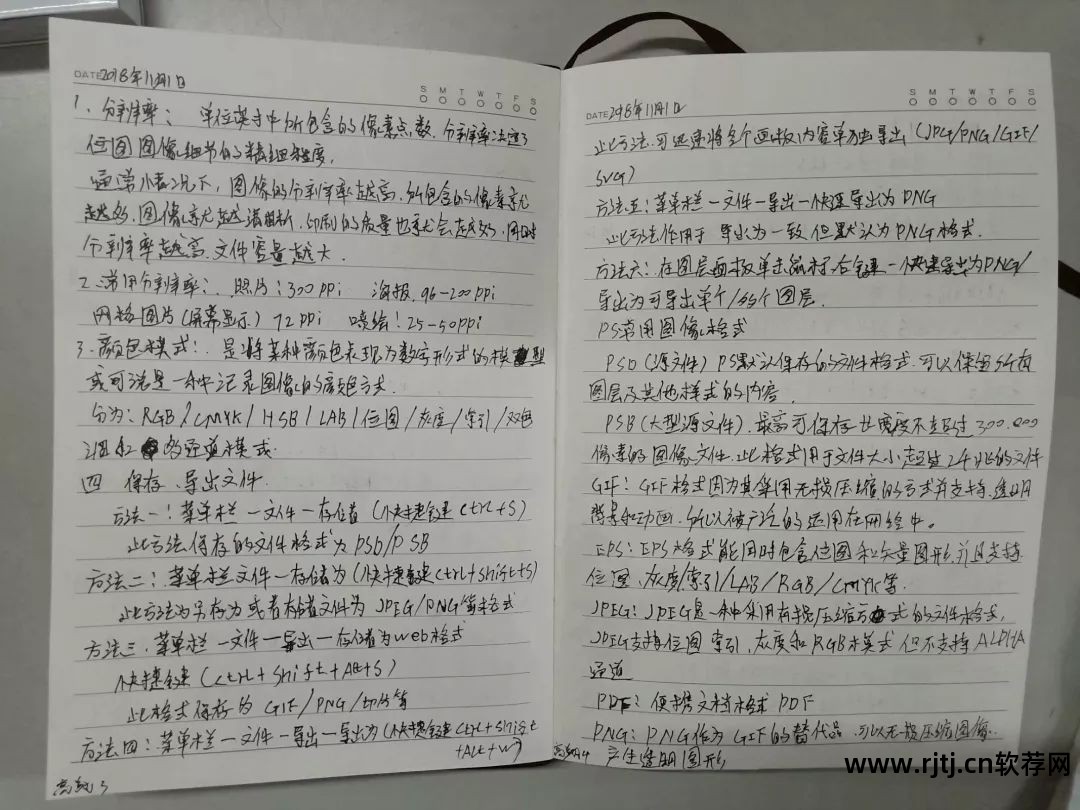 DATE 2018年11月1日
S M T W T F S
1、分辨率: 单位英寸中所包含的像素点数,分辨率决定了
位图图像细节的精细程度,
通常情况下,图像的分辨率越高,所包含的像素就
越多,图像就越清晰,印刷的质量也就会越好,同时
分辨率越高,文件容量越大.
2.常用分辨率: 照片:300ppi 海报.96-200ppi
网络图片(屏幕显示)72ppi 喷绘!25-50ppi
3.颜色模式: 是将某种颜色表现为数字形式的模型
或可说是一种记录图像的颜色方式.
分为:RGB/CMYK/HSB/LAB/位图/灰度/索引/双色
调和多通道模式.
四 保存、导出文件.
方法一:菜单栏一文件一存储(快捷键Ctrl+S)
此方法保存的文件格式为PSD/PSB
方法二:菜单栏文件一存储为(快捷键Ctrl+Shift+S)
此方法为另存为或者存储文件为JPEG/PNG等格式
方法三.菜单栏一文件一导出一存储为web格式
快捷键(Ctrl+Shift+Alt+S)
此格式保存的GIF/PNG/切片等
方法四:菜单栏一文件一导出一导出为(快捷键Ctrl+Shift
+Alt+W)
3
DATE 2018年11月1日
S M T W T F S
此方法.可迅速将多个画板内容单独导出(JPG/PNG/GIF/
SVG)
方法五:菜单栏一文件一导出一快速导出为PNG
此方法作用于导出为一致但默认为PNG格式.
方法六:在图层面板单击鼠标右键一快速导出为PNG/
导出为可导出单个/多个图层.
PS常用图像格式
PSD(源文件)PS默认保存的文件格式.可以保留所有
图层及其他样式的内容.
PSB(大型源文件).最高可保存长宽度不超过300.000
像素的图像文件.此格式用于文件大小超过2千兆的文件
GIF:GIF格式因为其采用无损压缩的方式并支持透明
背景和动画.所以被广泛的运用在网络中.
EPS:EPS格式能同时包含位图和矢量图形.并且支持
位图、灰度/索引/LAB/RGB/CMYK等.
JPEG:JPEG是一种采用有损压缩方式的文件格式,
JPEG支持位图 索引,灰度和RGB模式 但不支持ALPHA
通道
PDF:便携文档格式PDF
PNG:PNG作为GIF的替代品 可以无损压缩图像.
4 产生透明图形
www.rjtj.cn软荐网